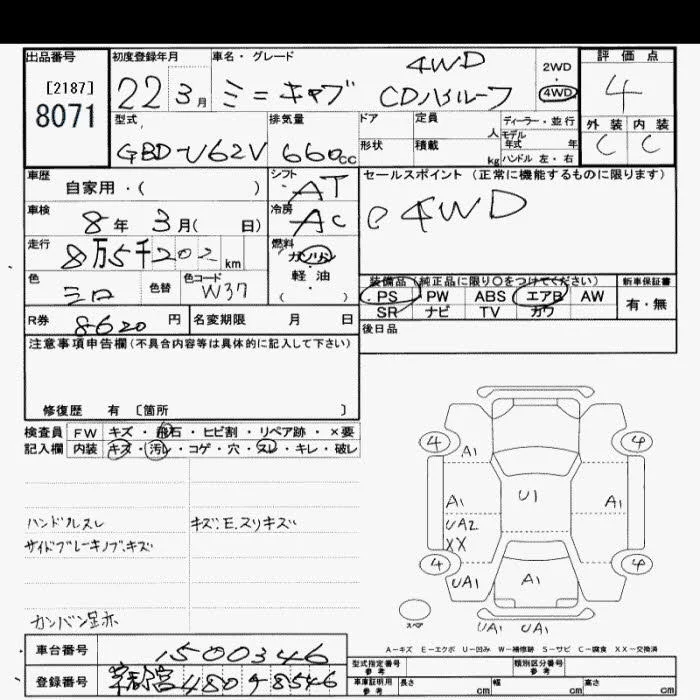 出品番号
[2187]
8071
初度登録年月
22 3月
車名・グレード
ミニキャブ
4WD
CDハイルーフ
2WD
4WD
評価点
4
外装 内装
C C
型式
GBD-U62V
排気量
660cc
ドア
形状
定員
人
積載
kg
ディーラー・並行
モデル
年式 年
ハンドル 左・右
車歴
自家用・( )
シフト
AT
車検
8年 3月( 日)
冷房
AC
走行
8万5千202km
燃料
ガソリン
軽油
( )
色
シロ
色替
色コード
W37
R券
8620円
名変期限 月 日
セールスポイント (正常に機能するものに限ります)
4WD
装備品 (純正品に限り〇をつけてください)
PS PW ABS エアB AW
SR ナビ TV カワ
新車保証書
有・無
後日品
注意事項申告欄(不具合内容等は具体的に記入して下さい)
修復歴 有 〔箇所 〕
検査員
記入欄
FW キズ・飛石・ヒビ割・リペア跡・×要
内装 キズ・汚レ・コゲ・穴・スレ・キレ・破レ
ハンドルスレ
キズ:E.スリキズ
サイドブレーキノブ.キズ
カンバン跡
4 4
A1
U1
A1 A1
UA2
XX
4 4
UA1 A1
スペア
UA1 UA1
A-キズ E-エクボ U-凹み W-補修跡 S-サビ C-腐食 XX-交換済
車台番号
1500346
登録番号
480 8546
型式指定番号
参考
類別区分番号
参考
車庫証明用
参考
長さ cm
幅 cm
高さ cm